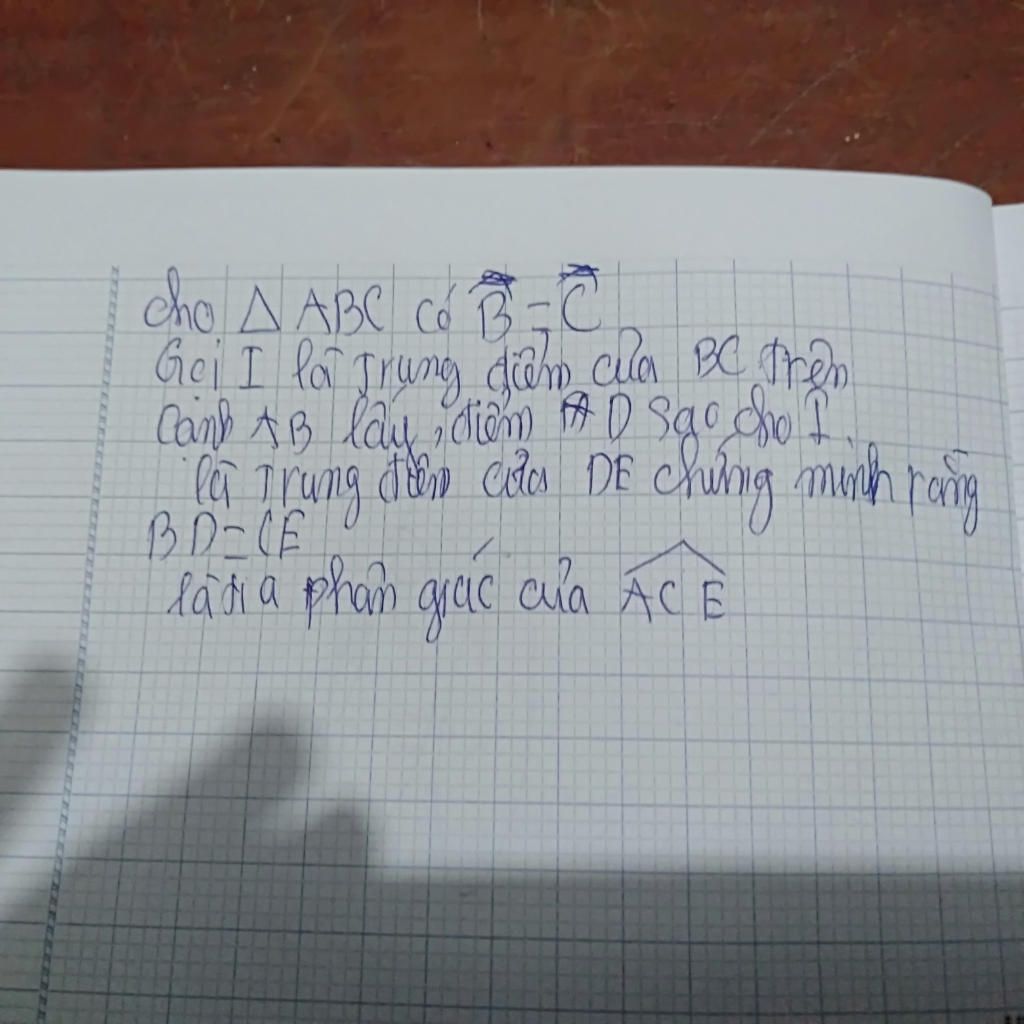 cho Δ ABC có B̂ = Ĉ
Gọi I là trung điểm của BC trên
cạnh AB lấy, điểm D sao cho I.
là trung điểm của DE chứng minh rằng
BD = CE
là tia phân giác của ACE